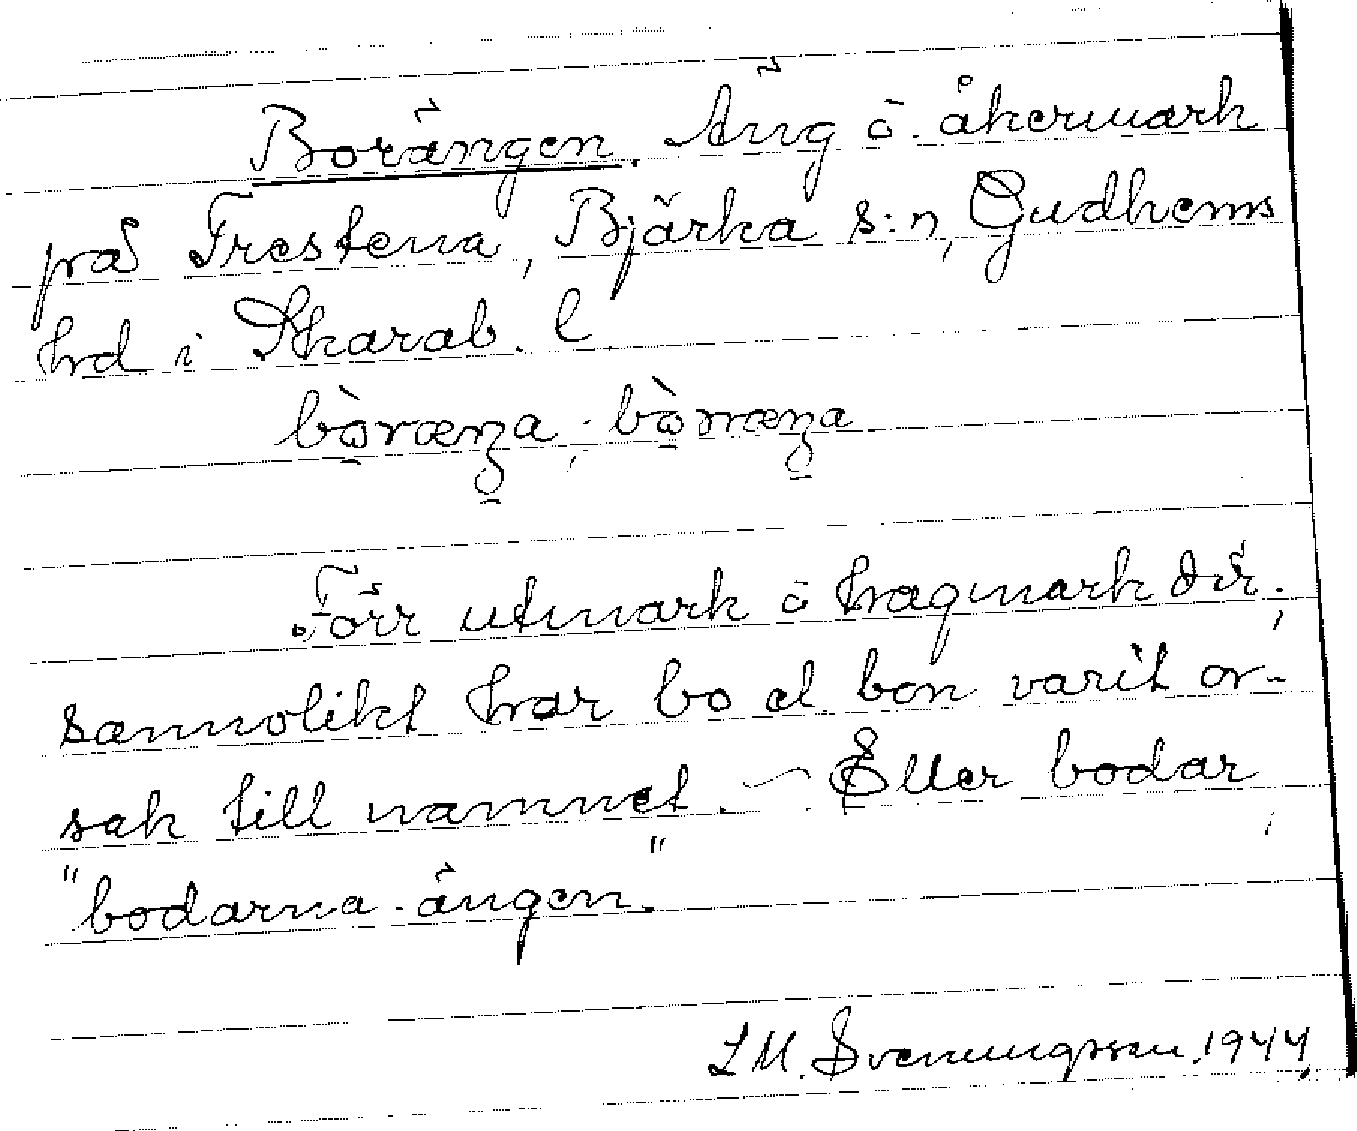 Borängen. Äng ö. åkermark
på Frestena, Bjärka s:n, Gudhems
hrd i Skarab. l.
Förr utmark ö hagmark där;
sannolikt har bo el bon varit or-
sak till namnet. – Eller bodar,
"bodarna-ängen."
L M. Svenungsson. 1944.